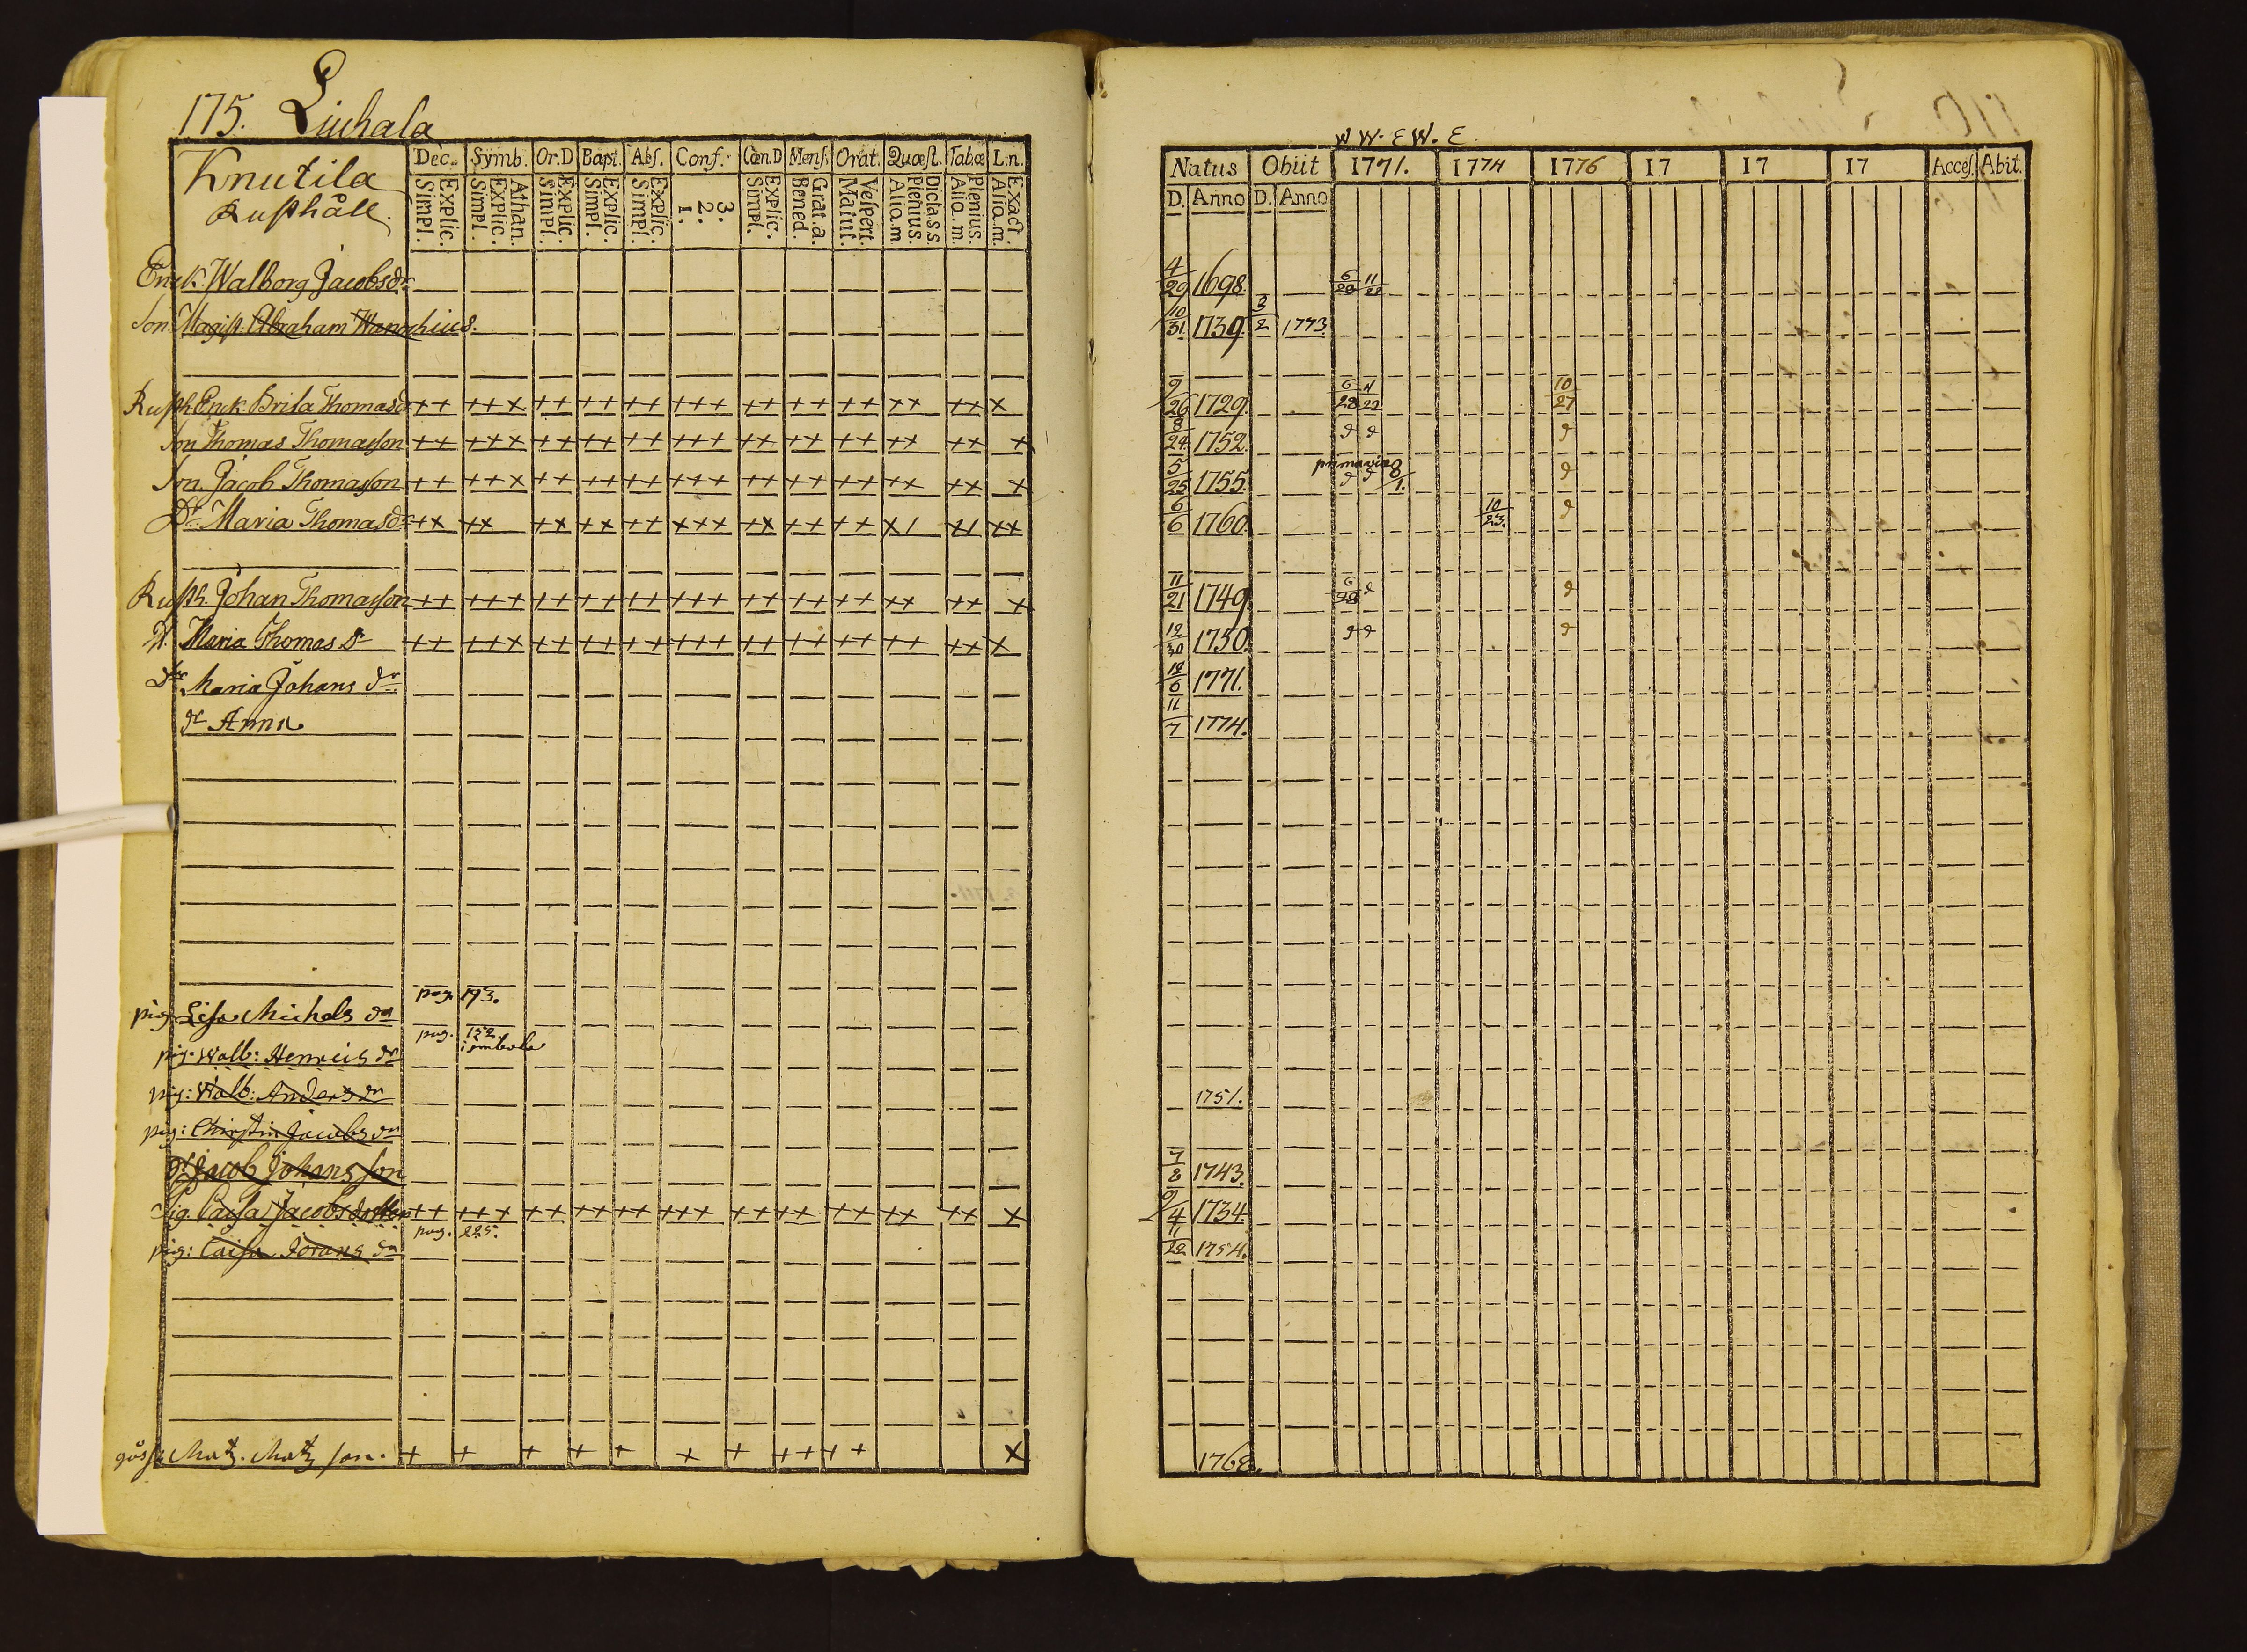 175. Liuhala
Knutila
Rusthåll
Dec. Symb. Or.D Bapt. Abs. Conf. Cœn.D Mens. Orat. Quæst. Tabœ L.n.
Simpl. Explic. Simpl. Explic. Athan. Simpl. Explic. Simpl. Explic. Simpl. Explic. 1. 2. 3. Simpl. Explic. Bened. Grat.a. Matut. Vespert. Aliq.m Plenius. Dicta.s.s Aliq.m. Plenius. Aliq.m. Exact.
Enck. Walborg Jacobsdr
Son. Magist. Abraham Wanochius.
Rusth Enk Brita Thomasd ++ ++x ++ ++ ++ +++ ++ ++ ++ ++ ++ x
Son Thomas Thomasson ++ +++ ++ ++ ++ +++ ++ ++ ++ ++ ++ x
Son. Jacob Thomasson ++ ++x ++ ++ ++ +++ ++ ++ ++ ++ ++ x
Dr Maria Thomasdr +x ++ ++ ++ ++ xxx +x ++ ++ x/ ++ ++
Rusth. Johan Thomasson ++ +++ ++ ++ ++ +++ ++ ++ ++ ++ ++ x
H. Maria Thomas Dr ++ ++x ++ ++ ++ +++ ++ ++ ++ ++ ++ x
Dtr Maria Johans dr
dr Anna
pag. 193.
pig. Lisa Michels dr
pag. 152
pig. Walb: Henrics dr
pig: Walb: Anders dr
pig: Christin Jacobs dr
Jacob Johans son
Pig. Caisa Jacobsdotter ++ +++ ++ ++ ++ +++ ++ ++ ++ ++ ++ x
pag. 225.
pig: Caisa Jörans dr
gåsse Matz. Matz son. + + + + + + + +++ + x
W W. E W. E.
Natus Obiit 1771. 1774 1776 17 17 17 Acces. Abit.
D. Anno D. Anno
4/29 1698. 6/28 11/22
10/31 1739 3/2 1773.
9/26 1729. 6/28 11/22 10/27
8/24 1752.
5/25 1755. primaria 8/1.
6/6 1760. 10/23.
11/21 1749 6/28
12/30 1750.
12/6 1771.
11/7 1774.
1751.
7/8 1743.
9/4 1734.
11/22 1754.
1762.